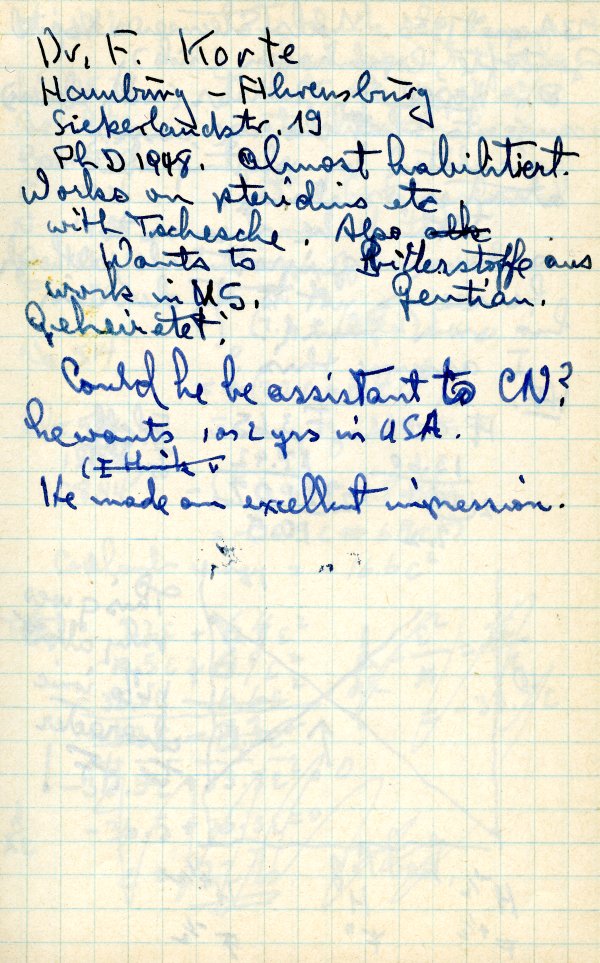 Dr. F. Korte
Hamburg - Ahrensburg
Siekerlandstr. 19
Ph D 1948. almost habilitiert.
Works on pteridins etc
with Tschesche. Also
Wants to Bitterstoffe aus
work in MS. Gentian.
Geheiratet!
Could he be assistant to CN?
he wants 1 or 2 yrs in USA.
(I think
He made an excellent impression.